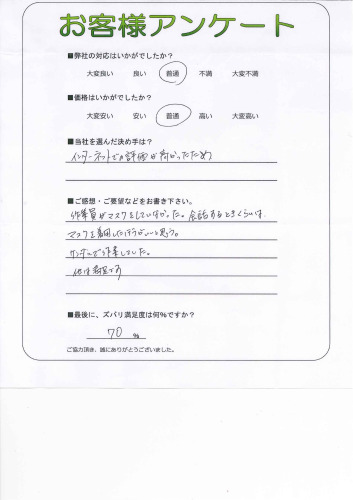 お客様アンケート
■弊社の対応はいかがでしたか？
大変良い 良い 普通 不満 大変不満
■価格はいかがでしたか？
大変安い 安い 普通 高い 大変高い
■当社を選んだ決め手は？
インターネットでの評価が高かったため
■ご感想・ご要望などをお書き下さい。
作業員がマスクをしていなかった。会話するときくらいは、
マスクを着用したほうがいいと思う。
サンダルで作業していた。
他は普通です
■最後に、ズバリ満足度は何％ですか？
70 ％
ご協力頂き、誠にありがとうございました。